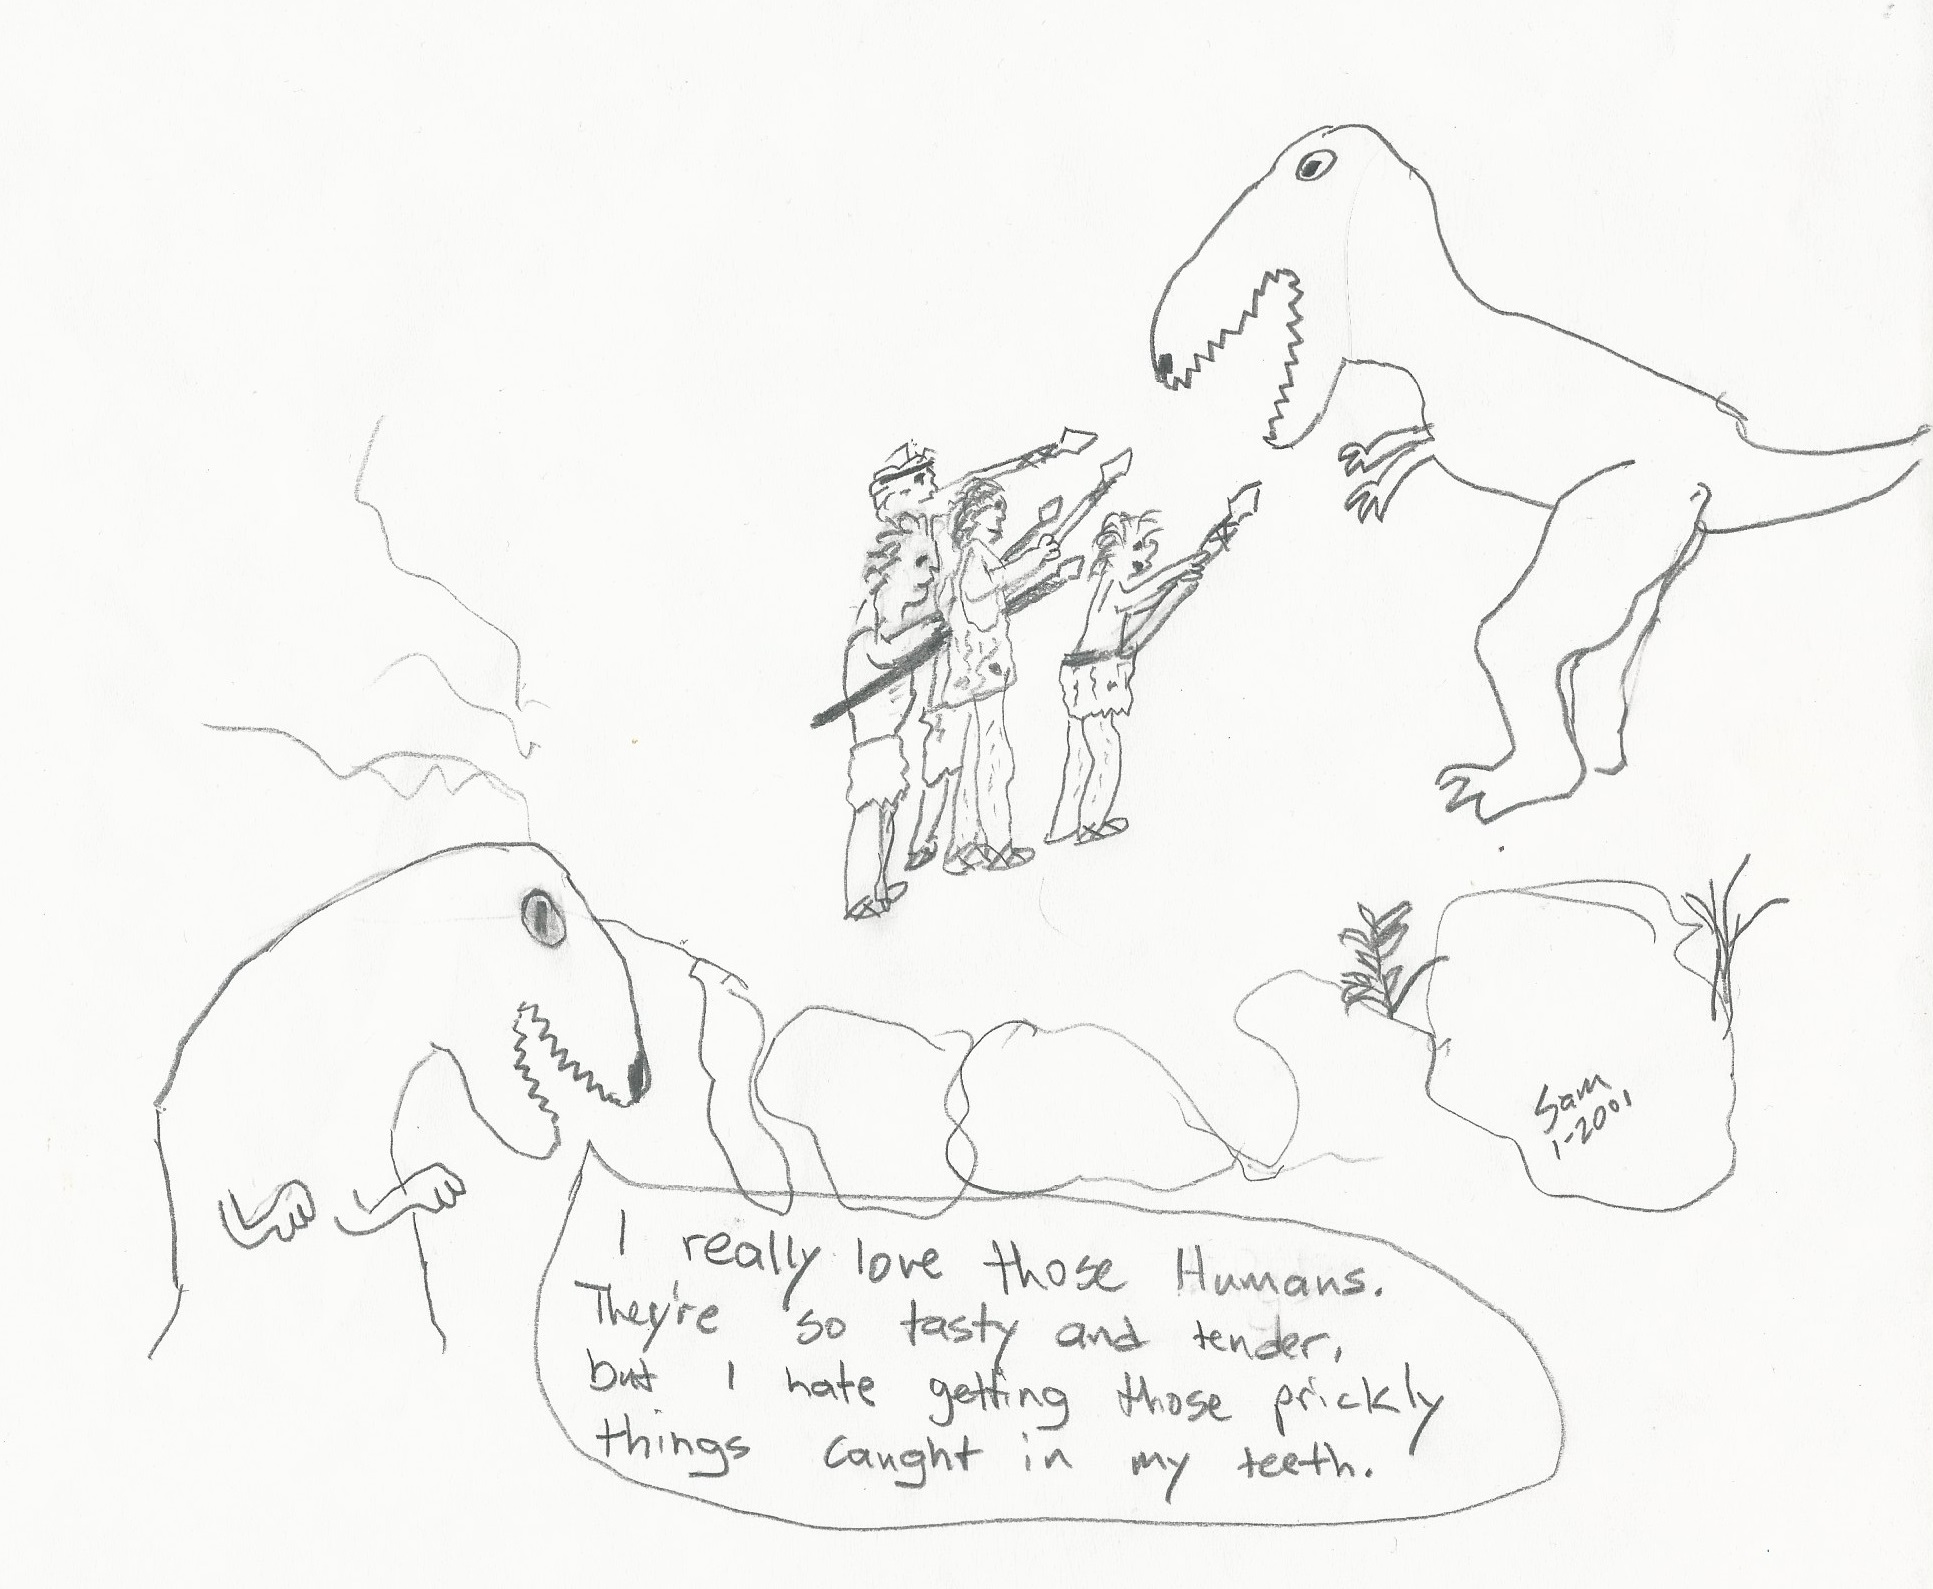 Sam
1-2001
I really love those Humans.
They're so tasty and tender,
but I hate getting those prickly
things caught in my teeth.